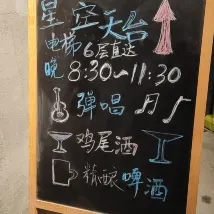 星空天台
电梯6层直达
晚8:30~11:30
弹唱
鸡尾酒
精酿啤酒